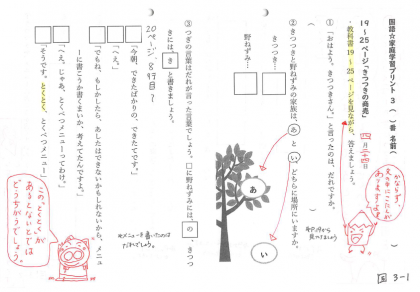 国語☆家庭学習プリント3（　）番 名前（
19～25ページ「きつつきの商売」
・教科書19～25ページを見ながら、答えましょう。
①「おはよう、きつつきさん。」と言ったのは、だれですか。
（　　　）
②きつつきと野ねずみの家族は、あ と い、どちらに場所にいますか。
きつつき…
野ねずみ…
あ
い
③つぎの言葉はだれが言った言葉でしょう。□に野ねずみには、の、きつつ
きには、き と書きましょう。
20ページ、8行目？
「今朝、できたばかりの、できたてです。」
「へえ。」
「でもね、もしかしたら、あしたはできないかもしれないから、メニュ
ーに書こうか書くまいか、考えてたんですよ。」
「へえ、じゃあ、とくべつメニューってわけ。」
「そうです。とくとく、とくべつメニュー」
この、とくとくが
あるとないとでは
どうちがうでしょう。
かならず、
3-1